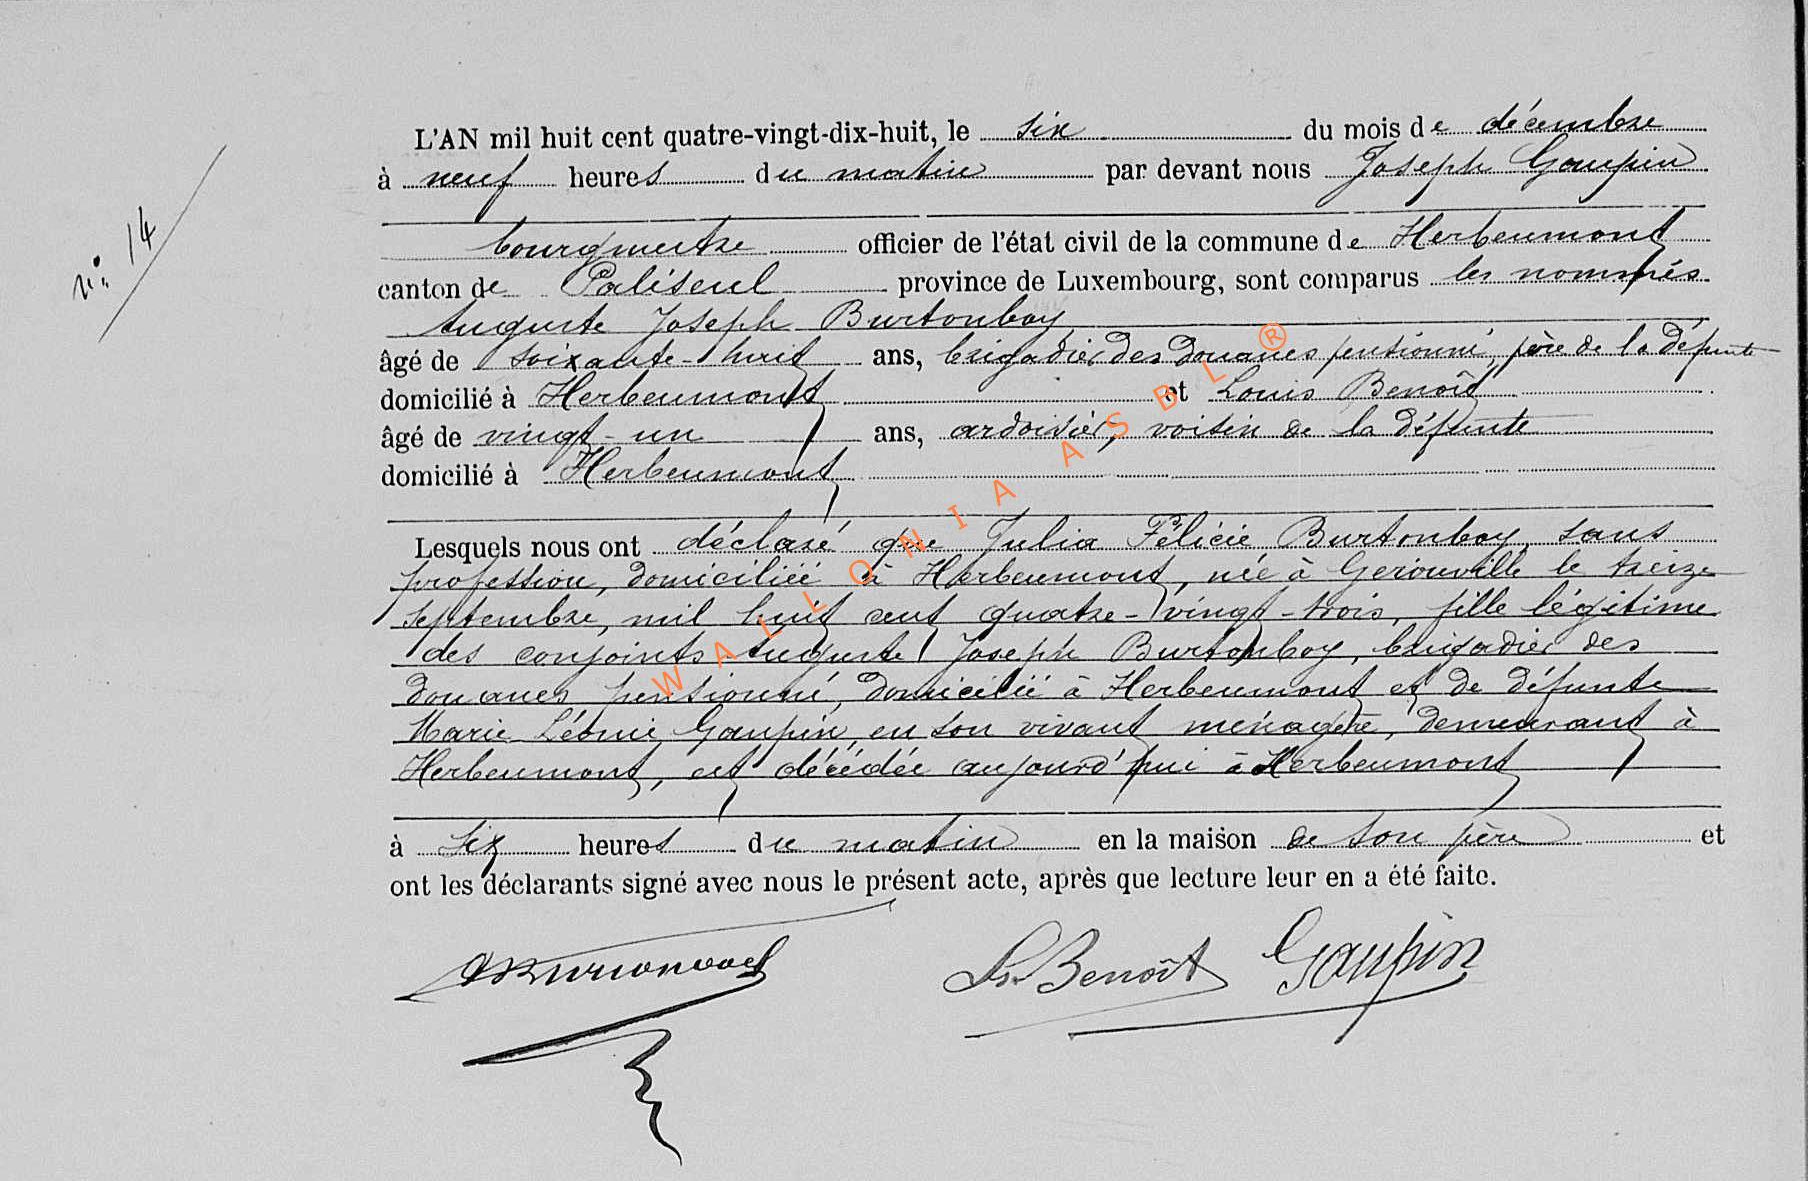 L'AN mil huit cent quatre-vingt-dix-huit, le six du mois de décembre
à neuf heures du matin par devant nous Joseph Gaupin
n° 14
bourgmestre officier de l'état civil de la commune de Herbeumont
canton de Paliseul province de Luxembourg, sont comparus les nommés
Auguste Joseph Burtonboy
âgé de soixante-huit ans, brigadier des Douanes pensionné, père de la défunte
domicilié à Herbeumont et Louis Benoît
âgé de vingt-un ans, ardoisier, voisin de la défunte
domicilié à Herbeumont
Lesquels nous ont déclaré que Julia Félicie Burtonboy, sans
profession, domiciliée à Herbeumont, née à Gérouville le treize
septembre, mil huit cent quatre-vingt-trois, fille légitime
des conjoints Auguste Joseph Burtonboy, brigadier des
douanes, pensionné, domicilié à Herbeumont et de défunte
Marie Léonie Gaupin, en son vivant ménagère, demeurant à
Herbeumont, est décédée aujourd'hui à Herbeumont
à six heures du matin en la maison de son père et
ont les déclarants signé avec nous le présent acte, après que lecture leur en a été faite.
Ls Benoît Gaupin
WALLONIA ASBL ®